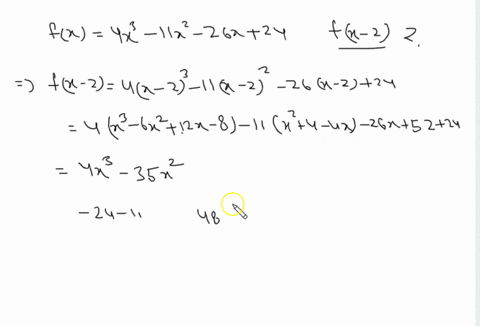 f(x) = 4x³ - 11x² - 26x + 24 f(x-2) ?.
=> f(x-2) = 4(x-2)³ - 11(x-2)² - 26(x-2) + 24
= 4(x³ - 6x² + 12x - 8) - 11(x² + 4 - 4x) - 26x + 52 + 24
= 4x³ - 35x²
-24-11 48